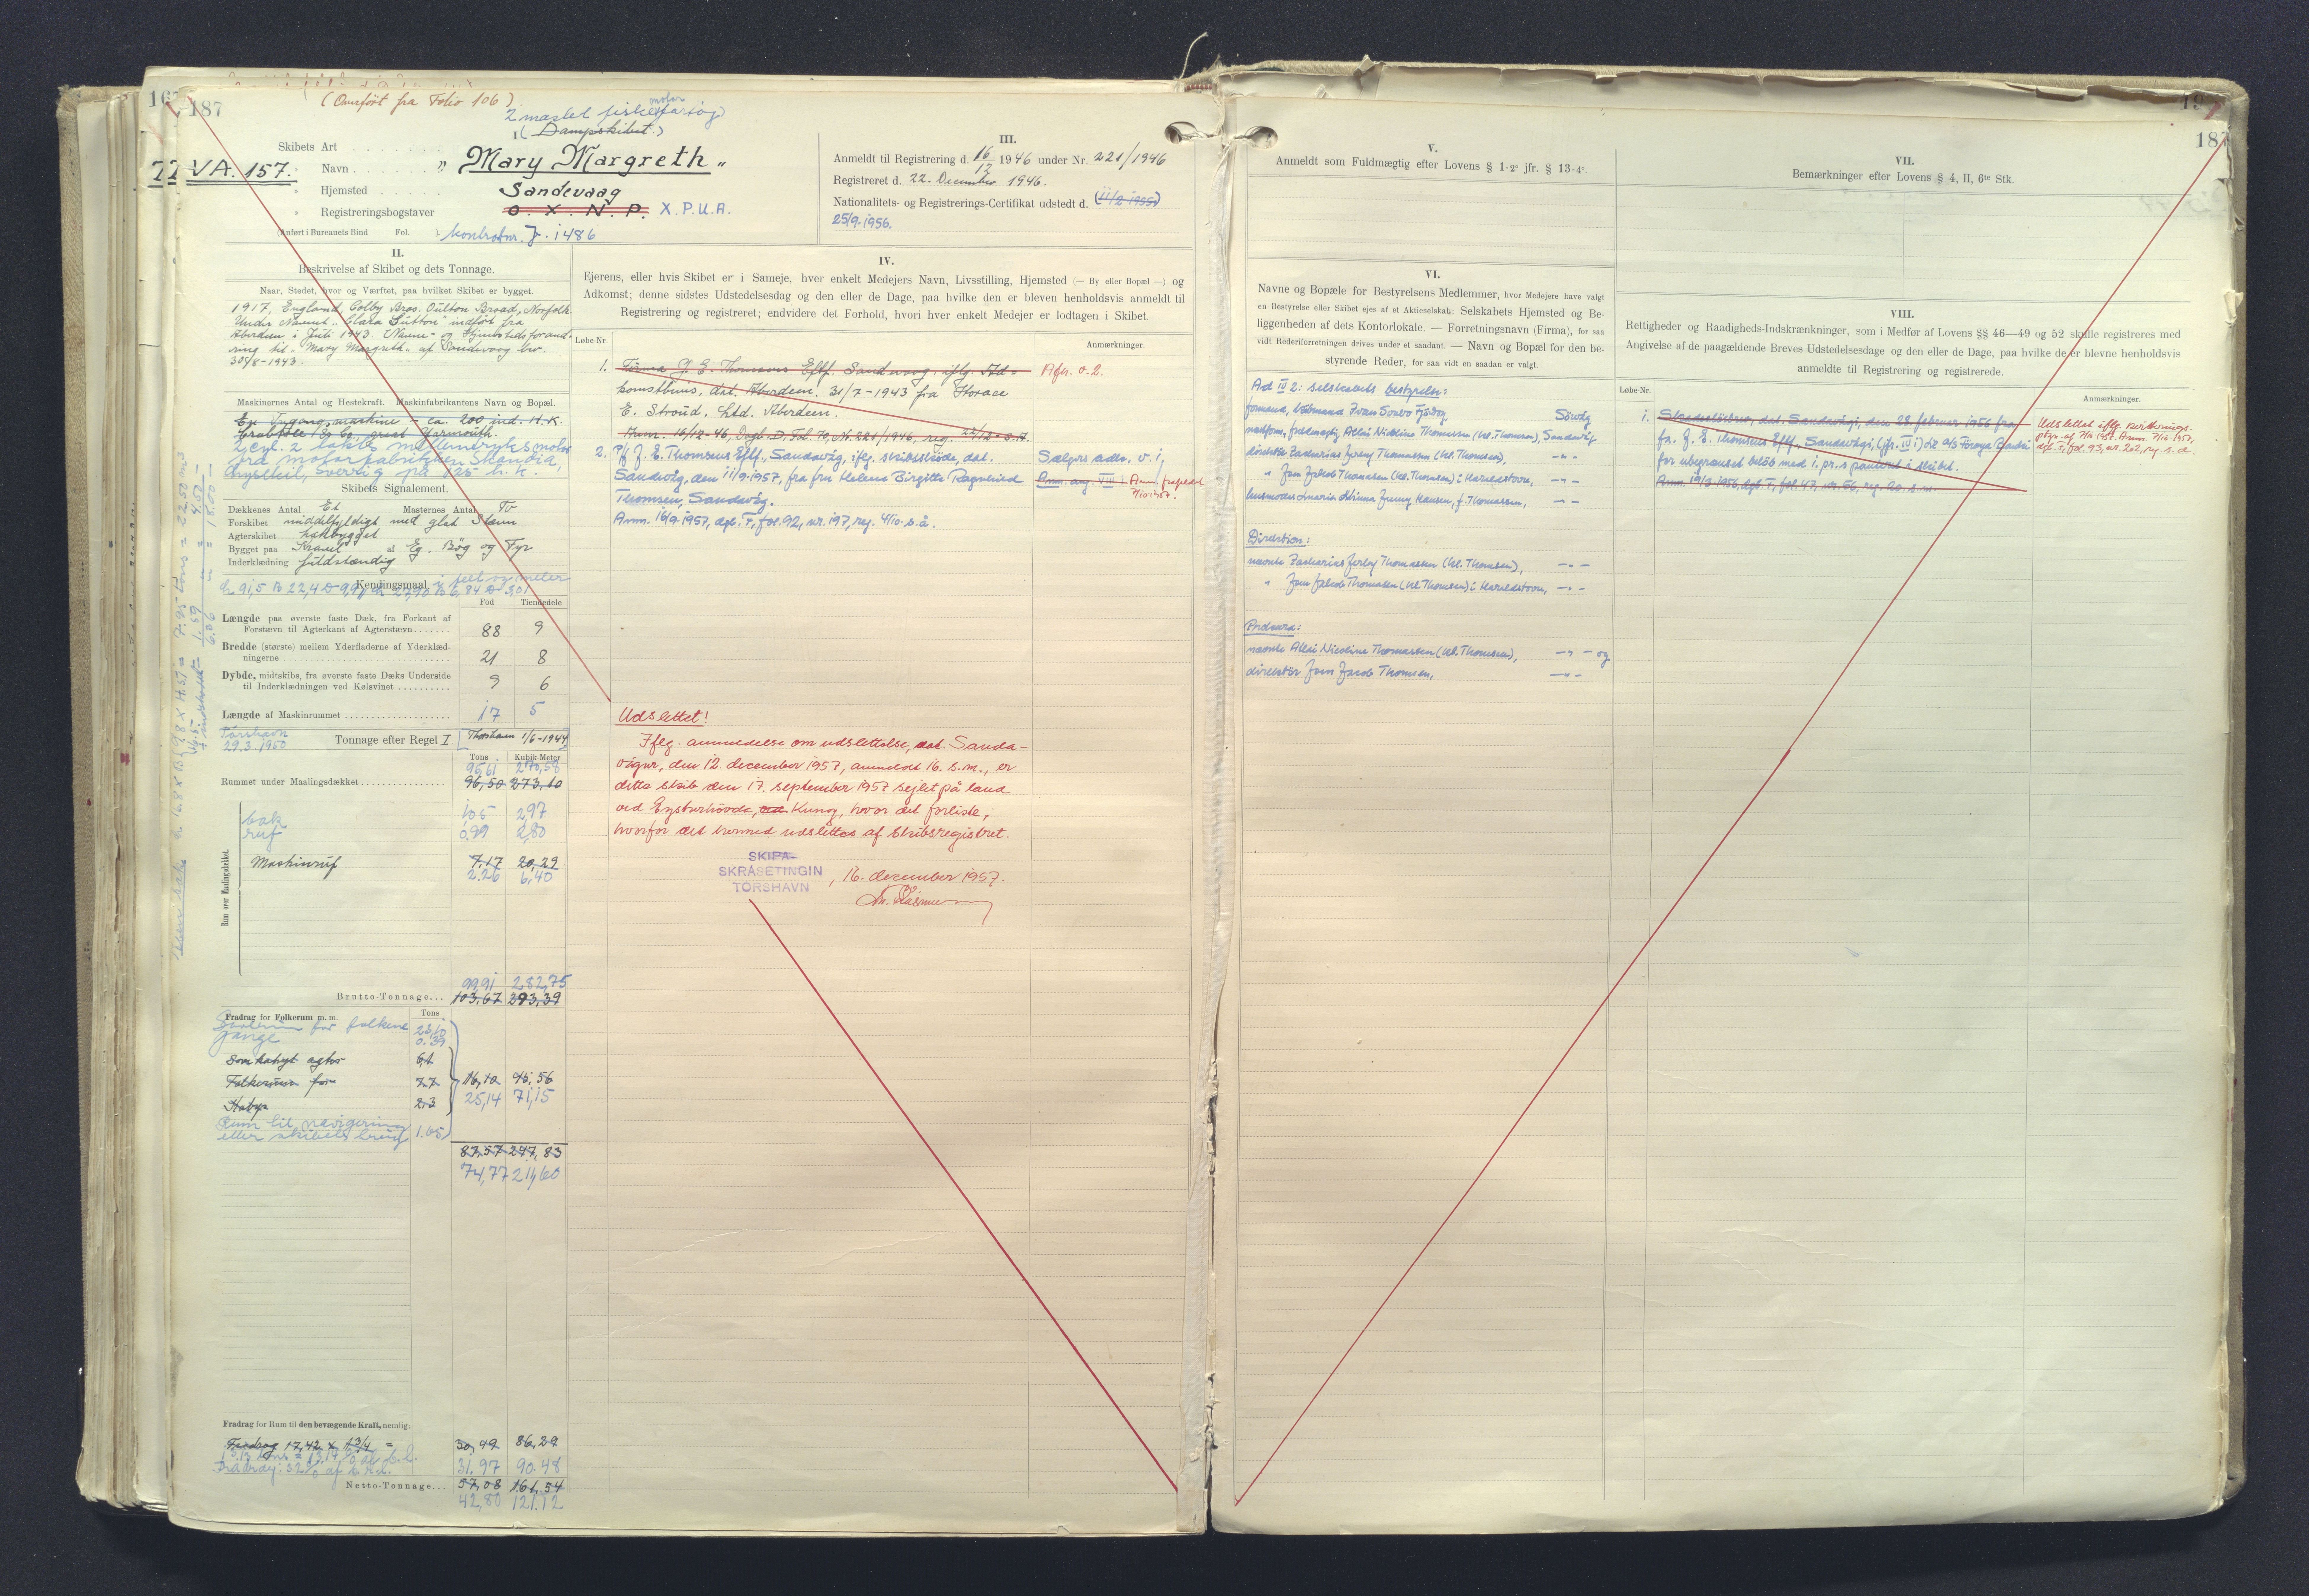 187
(Overført fra Folio 106)
2 mastet fiskefartøj
motor
I (Dampskibet.)
Skibets Art
VA. 157.
» Navn „ Mary Margreth „
» Hjemsted Sandevaag
» Registreringsbogstaver O. X. N. P. X.P.U.A.
(Anført i Bureauets Bind Fol. ) kontrolnr. J. 1486
III.
Anmeldt til Registrering d. 16/12 1946 under Nr. 221/1946
Registreret d. 22. December 1946.
Nationalitets- og Registrerings-Certifikat udstedt d. (11/2 1955)
25/9.1956.
II.
Beskrivelse af Skibet og dets Tonnage.
Naar, Stedet, hvor og Værftet, paa hvilket Skibet er bygget.
1917, England, Colby Bros. Oulton Broad, Norfolk.
Under Navnet „Clara Sutton" indført fra
Aberdeen i Juli 1943. Navne- og Hjemstedsforand-
ring til „Mary Margreth„ af Sandevaag
30/8-1943.
Maskinernes Antal og Hestekraft. Maskinfabrikantens Navn og Bopæl.
En Tygangsmaskine - ca. 200 ind. H.K.
Crabtree & Co. great Yarmouth.
2 cyl. 2 takts mellemtryksmotor
fra motorfabrikken Skandia,
Lysekil, Sverrig på 125 h.k.
Skibets Signalement.
Dækkenes Antal Et Masternes Antal To
Forskibet middelfyldigt med glat Stævn
Agterskibet hækbygget
Bygget paa Kravel af Eg, Bøg og Fyr
Inderklædning fuldstændig
Kendingsmaal i fod og meter
L 91,5 B 22,4 D 9,9
Fod Tiendedele
Længde paa øverste faste Dæk, fra Forkant af
Forstævn til Agterkant af Agterstævn 88 9
Bredde (største) mellem Yderfladerne af Yderklæd-
ningerne 21 8
Dybde, midtskibs, fra øverste faste Dæks Underside
til Inderklædningen ved Kølsvinet 9 6
Længde af Maskinrummet 17 5
Tórshavn
29.3.1950
Tonnage efter Regel I Thorshavn 1/6-1944
Tons Kubik-Meter
95,61 270,58
Rummet under Maalingsdækket 96,50 273,10
Rum over Maalingsdækket.
bak 1,05 2,97
ruf 0,99 2,80
Maskinruf 7,17 20,29
2.26 6,40
99,91 282,75
Brutto-Tonnage... 103,67 293,39
Fradrag for Folkerum m. m. Tons
Soverum for folkene 23,10
gange 0.39
Folkerum for 7.7 16,10 45,56
Kabys 2.3 25,14 71,15
Rum til navigering
eller skibets brug 1.65
87,57 247,83
74,77 211,60
Fradrag for Rum til den bevægende Kraft, nemlig:
Fradrag 17,42 x 1 3/4 = 30,49 86,29
Fradrag: 32% af 31,97 90.48
Netto-Tonnage... 57,08 161,54
42,80 121.12
IV.
Ejerens, eller hvis Skibet er i Sameje, hver enkelt Medejers Navn, Livsstilling, Hjemsted (— By eller Bopæl —) og
Adkomst; denne sidstes Udstedelsesdag og den eller de Dage, paa hvilke den er bleven henholdsvis anmeldt til
Registrering og registreret; endvidere det Forhold, hvori hver enkelt Medejer er lodtagen i Skibet.
Løbe-Nr. Anmærkninger.
1. Firma J. E. Thomsens Eftf. Sandevaag, iflg. Ad-
komstbevis, dat. Aberdeen. 31/7-1943 fra Horace
E. Stroud. Ltd. Aberdeen.
Anm. 16/12-46, Dagb. D, Fol. 70, Nr. 221/1946, reg. 22/12- s.å.
Afh. v. 2.
2. P/f J. E. Thomsens Eftf., Sandevåg, iflg. skibsskøde, dat.
Sandevåg, den 11/9 1957, fra fru Helena Birgitte Ragnhild
Thomsen, Sandevåg.
Anm. 16/9 1957, dgb. F, fol. 92, nr. 197, reg. 4/10. s.å.
Sælgers adk. v. 1,
Anm. ang VIII 1 Anm. frafaldt
7/10 1957.
Udslettet!
Iflg. anmeldelse om udslettelse, dat. Sanda-
vágur, den 12. december 1957, anmeldt 16. s.m., er
dette skib den 17. september 1957 sejlet på land
ved Eysturhøvda, Kunoy, hvor det forliste,
hvorfor det hermed udslettes af Skibsregistret.
SKIPA-
SKRÁSETINGIN
TÓRSHAVN
, 16. december 1957.
187
V.
Anmeldt som Fuldmægtig efter Lovens § 1-2° jfr. § 13-4°.
VI.
Navne og Bopæle for Bestyrelsens Medlemmer, hvor Medejere have valgt
en Bestyrelse eller Skibet ejes af et Aktieselskab; Selskabets Hjemsted og Be-
liggenheden af dets Kontorlokale. — Forretningsnavn (Firma), for saa
vidt Rederiforretningen drives under et saadant. — Navn og Bopæl for den be-
styrende Reder, for saa vidt en saadan er valgt.
Ad IV 2: selskabets bestyrelse:
formand, Sörvåg
næstform., fuldmægtig Alleis Nicoline Thomassen (kl. Thomsen), Sandevåg
direktør Zacharias Ferley Thomassen (kl. Thomsen), —„—
„ Jan Jákob Thomassen (kl. Thomsen) i Haraldstovu, —„—
husmoder Maria Hansen, f. Thomassen, —„—
Direktion:
nævnte Zacharias Ferley Thomassen (kl. Thomsen), —„—
„ Jan Jákob Thomassen (kl. Thomsen) i Haraldstovu, —„—
Prokura:
nævnte Alleis Nicoline Thomassen (kl. Thomsen), —„— og
direktør Jan Jacob Thomsen, —„—
VII.
Bemærkninger efter Lovens § 4, II, 6te Stk.
VIII.
Rettigheder og Raadigheds-Indskrænkninger, som i Medfør af Lovens §§ 46—49 og 52 skulle registreres med
Angivelse af de paagældende Breves Udstedelsesdage og den eller de Dage, paa hvilke de er blevne henholdsvis
anmeldte til Registrering og registrerede.
Løbe-Nr. Anmærkninger.
1. Skadesløsbrev, dat. Sandevågi, den 28. februar 1956 fra
fa. J. E. Thomsens Eftf., Sandevågi, (jfr. IV 1) til A/S Föroya Banki
for ubegrænset beløb med 1. pr.s panteret i skibet.
Anm. 19/3 1956, dgb. F, fol. 47, nr. 56, reg. 20. s.m.
Udslettet iflg. kvitterings-
påtgn. af 7/10 1957. Anm. 7/10 1957,
dgb. F, fol. 93, nr. 202, reg. s.d.